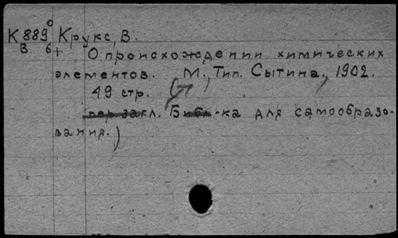 К 889⁰ Крукс, В.
В 6+
О происхождении химических
элементов. М., Тип. Сытина, 1902.
49 стр.
загл. (Библ-ка для самообразо-
вания.)